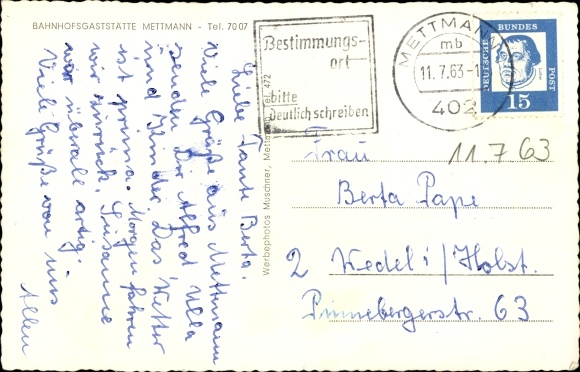 BAHNHOFSGASTSTÄTTE METTMANN - Tel. 7007
Liebe Tante Berta.
Viele Grüße aus Mettmann
senden Dir Alfred Ulla
und Kinder. Das Wetter
ist prima. Morgen fahren
wir zurück. Susanne
war überall artig.
Viele Grüße von uns
Allen
Werbephotos Muschner, Mettmann
472
Bestimmungs-
ort
bitte
deutlich schreiben
METTMANN
mb
11.7.63-1
402
DEUTSCHE BUNDES POST
15
11.7.63
Frau
Berta Pape
2 Wedel i/Holst.
Pinnebergerstr. 63